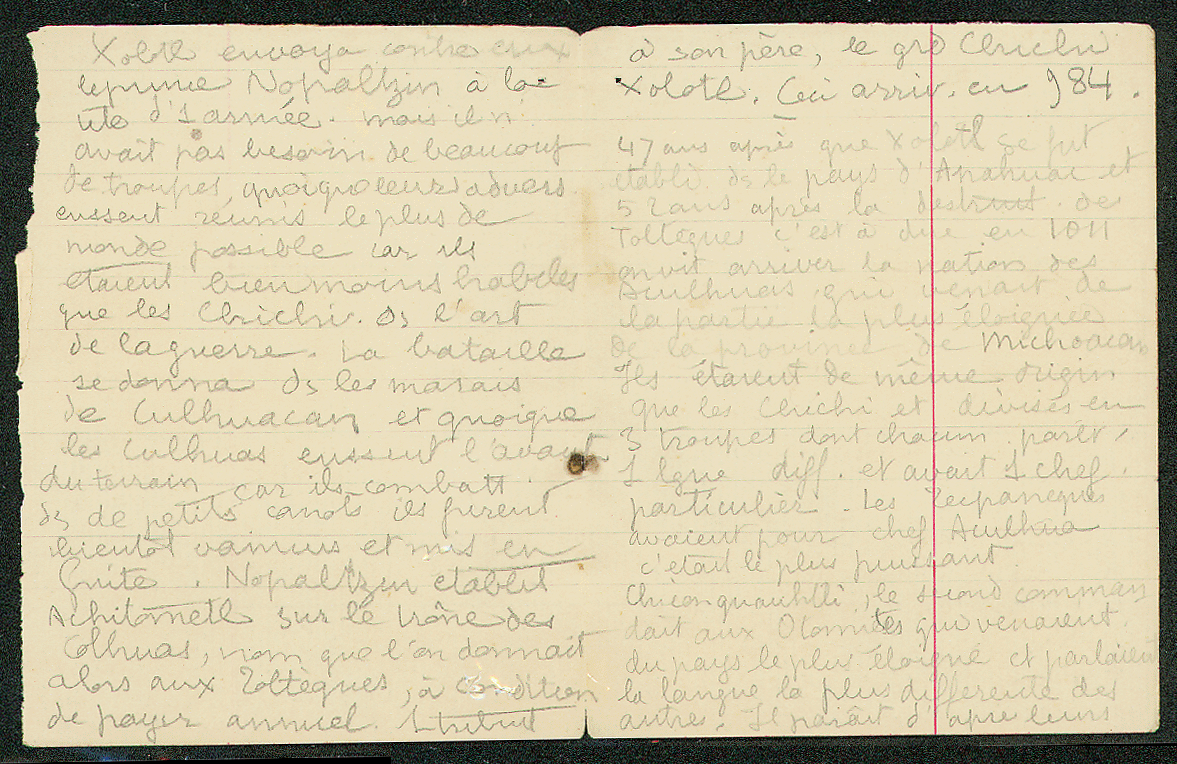 Xolotl envoya contre eux
le prince Nopaltzin à la
tête d'1 armée. mais il n'
avait pas besoin de beaucoup
de troupes quoique leurs advers
eussent réunis le plus de
monde possible car ils
étaient bien moins habiles
que les Chichi. ds l'art
de la guerre. La bataille
se donna ds les marais
de Culhuacan et quoique
les Culhuas eussent l'avant
du terrain car ils combatt.
ds de petits canots ils furent
bientôt vaincus et mis en
fuite. Nopaltzin établit
Achitometl sur le trône des
Colhuas, nom que l'on donnait
alors aux Toltèques, à condition
de payer annuel. 1 tribut
à son père, le grd Chichi
Xolotl. Ceci arriv. en 984.
47 ans après que Xolotl se fut
établi ds le pays d'Anahuac et
52 ans après la destruct. des
Toltèques c'est à dire en 1011
on vit arriver la nation des
Aculhuas qui venait de
la partie la plus éloignée
de la province de Michoacan
Ils étaient de même origin
que les Chichi et divisés en
3 troupes dont chacun parlt
1 lgue diff. et ayant 1 chef
particulier. Les Tecpanèques
avaient pour chef Aculhua
c'était le plus puissant.
Chiconquauhtli, le second comman
dait aux Otomites qui venaient
du pays le plus éloigné et parlaient
la langue la plus différente des
autres. Il parait d'apre leurs